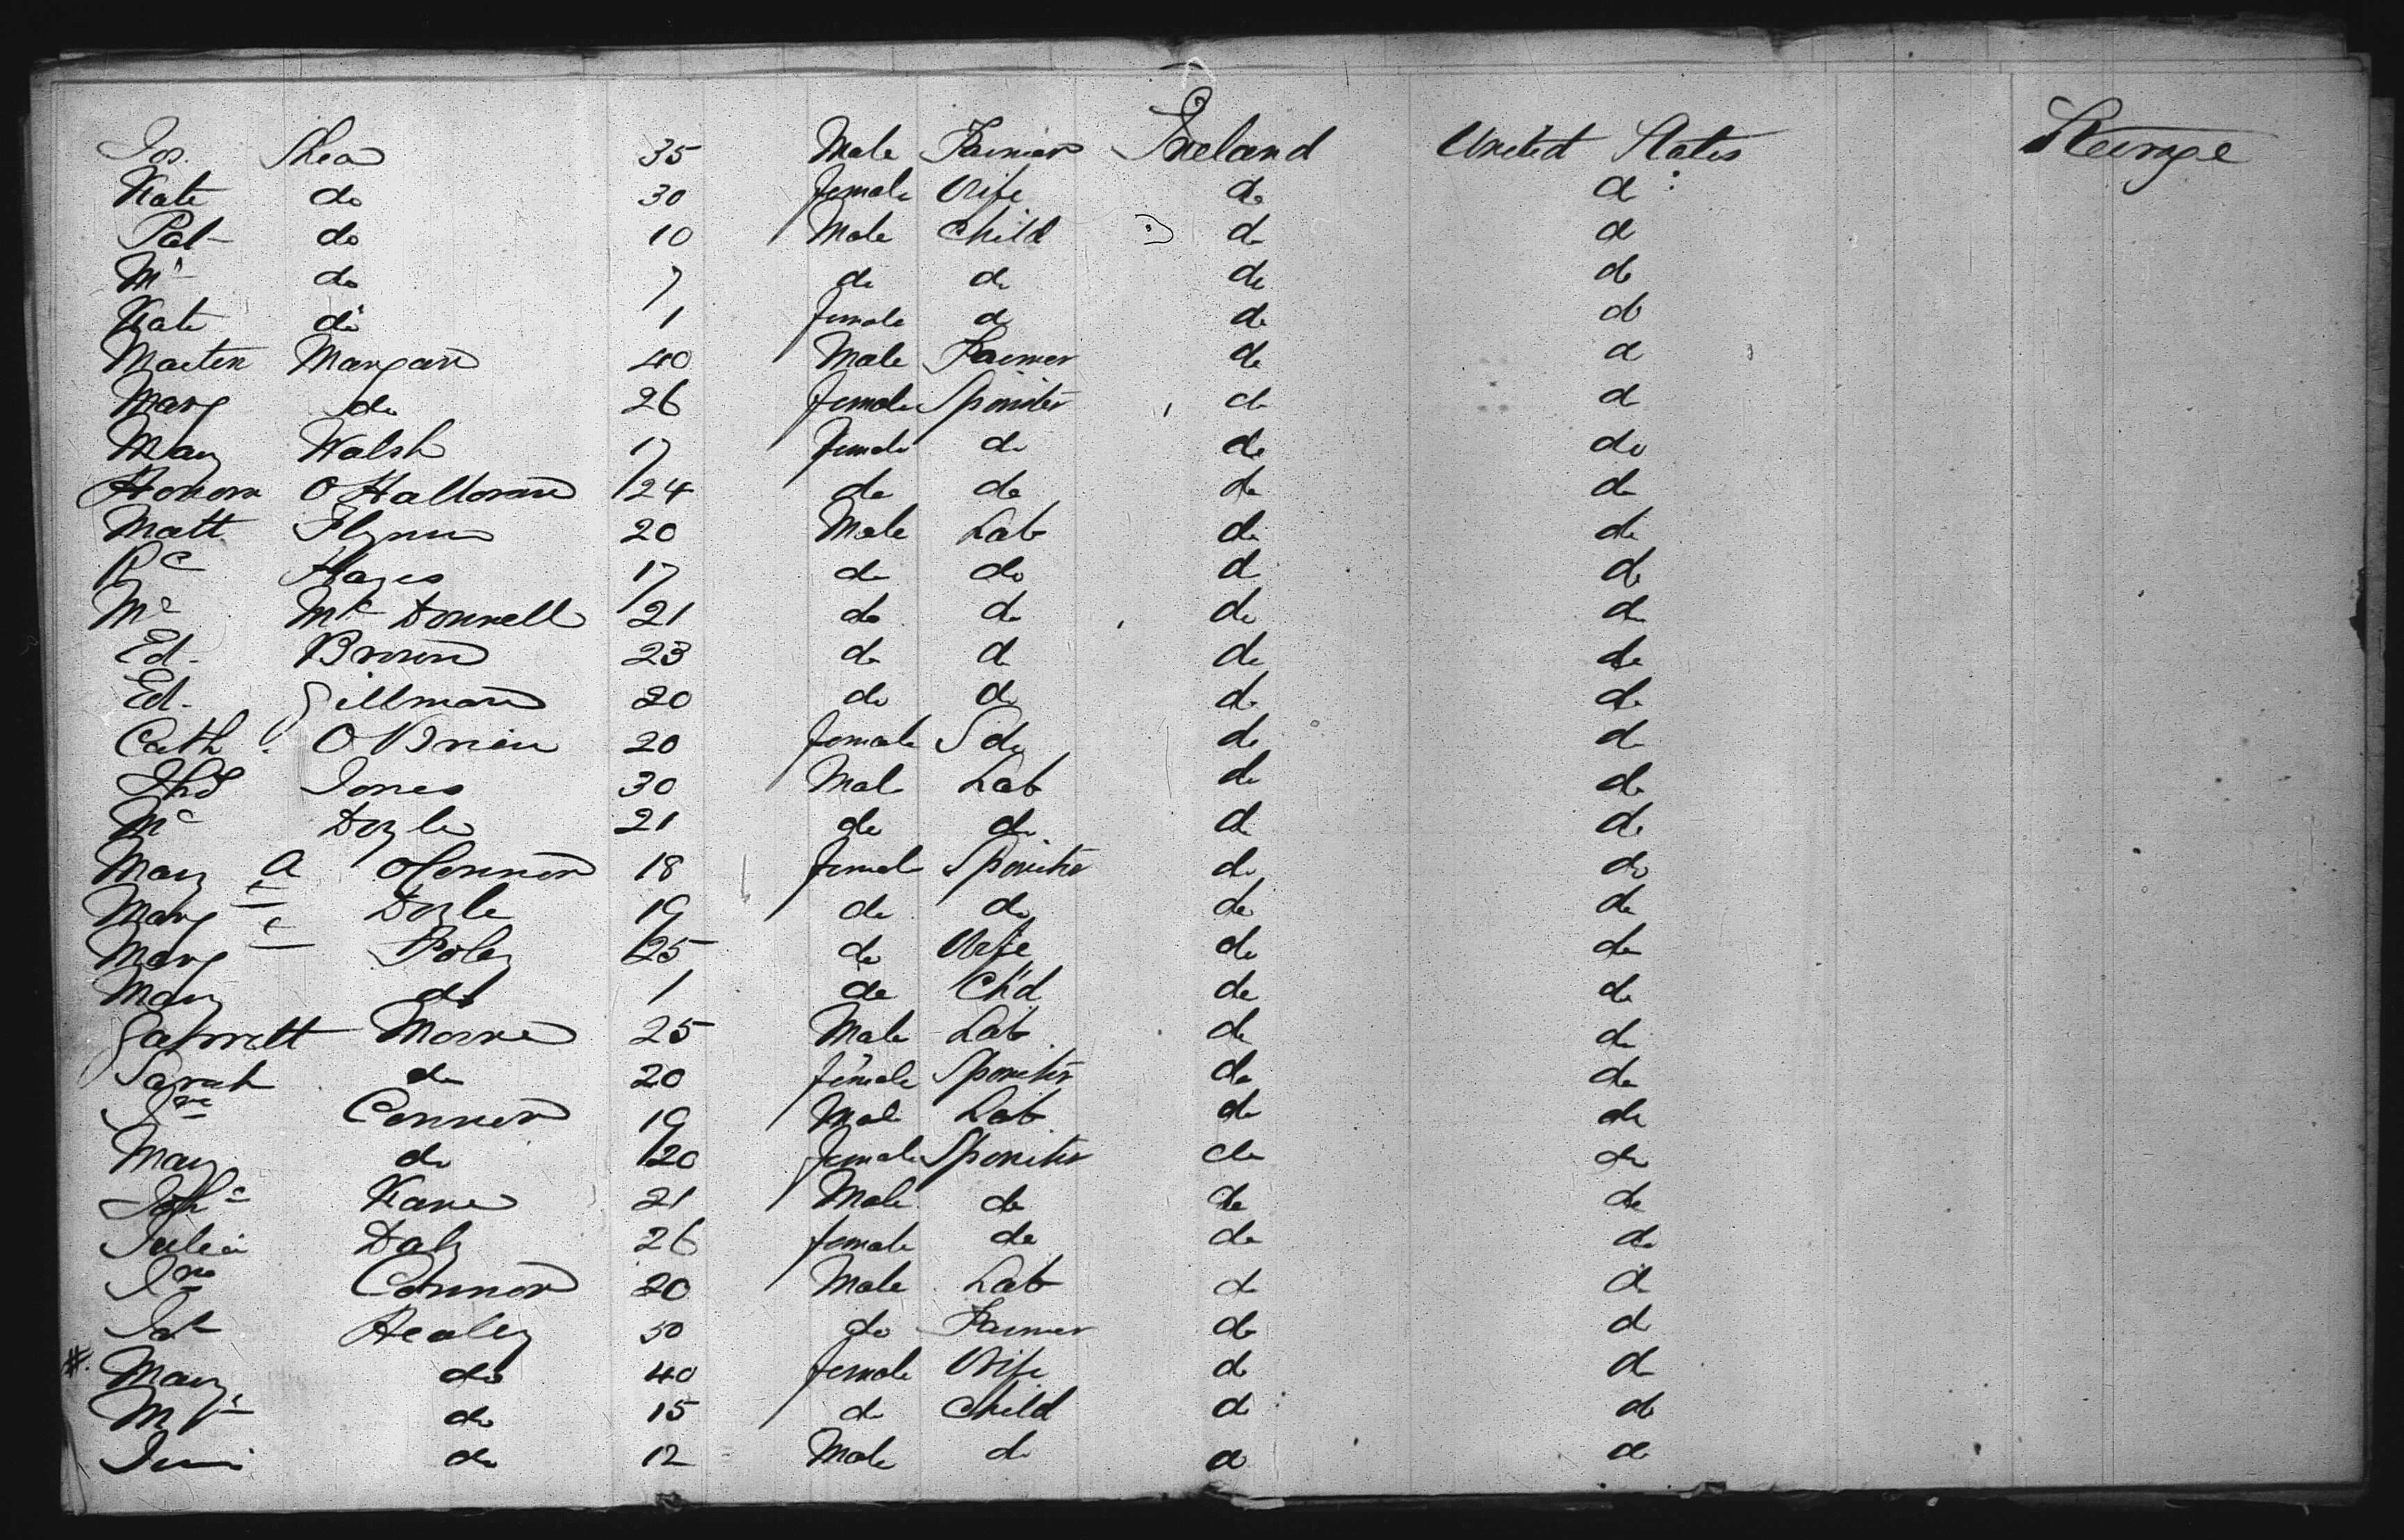 Jos. Shea 35 Male Farmer Ireland United States Steerage
Kate do 30 female Wife do do
Pat do 10 Male Child do do
Ml do 7 do do do do
Kate do 1 female do do do
Marten Mangan 40 Male Farmer do do
Marg do 26 female Spinster do do
Mary Walsh 17 female do do do
Honora O Halloran 24 do do do do
Matt Flynn 20 Male Lab do do
Hayes 17 do do do do
Mc McDonnell 21 do do do do
Ed. Brown 23 do do do do
Ed. Gillman 20 do do do do
Cath. O Brien 20 female S do do do
Thos Jones 30 Male Lab do do
Mc Doyle 21 do do do do
Mary A OConnor 18 female Spinster do do
Margt Doyle 19 do do do do
Margt Foley 25 do Wife do do
Mary do 1 do Ch'd do do
Garrett Moore 25 Male Lab do do
Sarah do 20 female Spinster do do
Jno Connor 19 Male Lab do do
Mary do 20 female Spinster do do
Kane 21 Male do do do
Julia Daly 26 female do do do
Jno Connor 20 Male Lab do do
Pat Healey 50 do Farmer do do
#. Mary do 40 female Wife do do
do 15 do Child do do
do 12 Male do do do